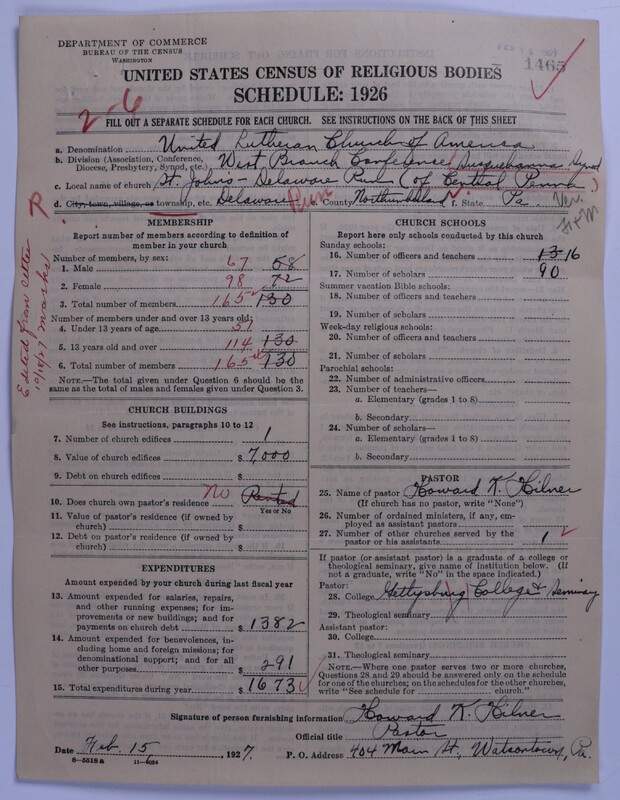 DEPARTMENT OF COMMERCE
BUREAU OF THE CENSUS
WASHINGTON
1465
UNITED STATES CENSUS OF RELIGIOUS BODIES
SCHEDULE: 1926
2-6
FILL OUT A SEPARATE SCHEDULE FOR EACH CHURCH. SEE INSTRUCTIONS ON THE BACK OF THIS SHEET
a. Denomination United Lutheran Church of America
b. Division (Association, Conference, Diocese, Presbytery, Synod, etc.) West Branch Conference (Susquehanna Synod
c. Local name of church St. John's - Delaware Run (of Central Penna)
d. City, town, village, or township, etc. Delaware Run e. County Northumberland f. State Pa.
Ver.
H+M
Edited from letter
10/18/27 Marks
P
MEMBERSHIP
Report number of members according to definition of member in your church
Number of members, by sex:
1. Male 67 58
2. Female 98 72
3. Total number of members 165 130
Number of members under and over 13 years old:
4. Under 13 years of age 51
5. 13 years old and over 114 130
6. Total number of members 165 130
NOTE.—The total given under Question 6 should be the same as the total of males and females given under Question 3.
CHURCH BUILDINGS
See instructions, paragraphs 10 to 12
7. Number of church edifices 1
8. Value of church edifices $ 7,000
9. Debt on church edifices $
10. Does church own pastor's residence No Rented
Yes or No
11. Value of pastor's residence (if owned by church) $
12. Debt on pastor's residence (if owned by church) $
EXPENDITURES
Amount expended by your church during last fiscal year
13. Amount expended for salaries, repairs, and other running expenses; for improvements or new buildings; and for payments on church debt $ 1382
14. Amount expended for benevolences, including home and foreign missions; for denominational support; and for all other purposes $ 291
15. Total expenditures during year $ 1673
CHURCH SCHOOLS
Report here only schools conducted by this church
Sunday schools:
16. Number of officers and teachers 13 16
17. Number of scholars 90
Summer vacation Bible schools:
18. Number of officers and teachers
19. Number of scholars
Week-day religious schools:
20. Number of officers and teachers
21. Number of scholars
Parochial schools:
22. Number of administrative officers
23. Number of teachers—
a. Elementary (grades 1 to 8)
b. Secondary
24. Number of scholars—
a. Elementary (grades 1 to 8)
b. Secondary
PASTOR
25. Name of pastor Howard K. Hilner
(If church has no pastor, write "None")
26. Number of ordained ministers, if any, employed as assistant pastors
27. Number of other churches served by the pastor or his assistants 1
If pastor (or assistant pastor) is a graduate of a college or theological seminary, give name of institution below. (If not a graduate, write "No" in the space indicated.)
Pastor:
28. College Gettysburg College & Seminary
29. Theological seminary
Assistant pastor:
30. College
31. Theological seminary
NOTE.—Where one pastor serves two or more churches, Questions 28 and 29 should be answered only on the schedule for one of the churches; on the schedules for the other churches, write "See schedule for church."
Signature of person furnishing information Howard K. Hilner
Official title Pastor
Date Feb. 15, 1927.
P. O. Address 404 Main St., Watsontown, Pa.
8—5518a 11—9024